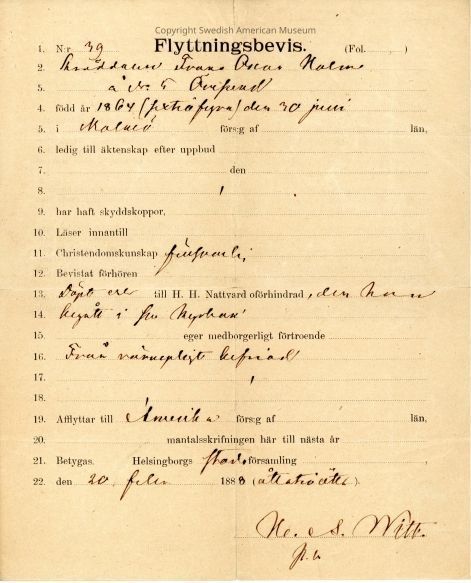 Copyright Swedish American Museum
1. N:r 39 Flyttningsbevis. (Fol. , )
2. Skräddaren Frans Oscar Holm
5. å No 5
4. född år 1864 (sextiofyra) den 30 juni
5. i Malmö förs:g af län,
6. ledig till äktenskap efter uppbud
7. den
8.
9. har haft skyddskoppor,
10. Läser innantill
11. Christendomskunskap försvarlig
12. Bevistat förhören
13. Döpt till H. H. Nattvard oförhindrad, den han
14. begått i
15. eger medborgerligt förtroende
16. Från värnepligt befriad
17.
18.
19. Afflyttar till Amerika förs:g af län,
20. mantalsskrifningen här till nästa år
21. Betygas. Helsingborgs stads församling ,
22. den 20 febr 1888 (åttatioåtta).
Witt.